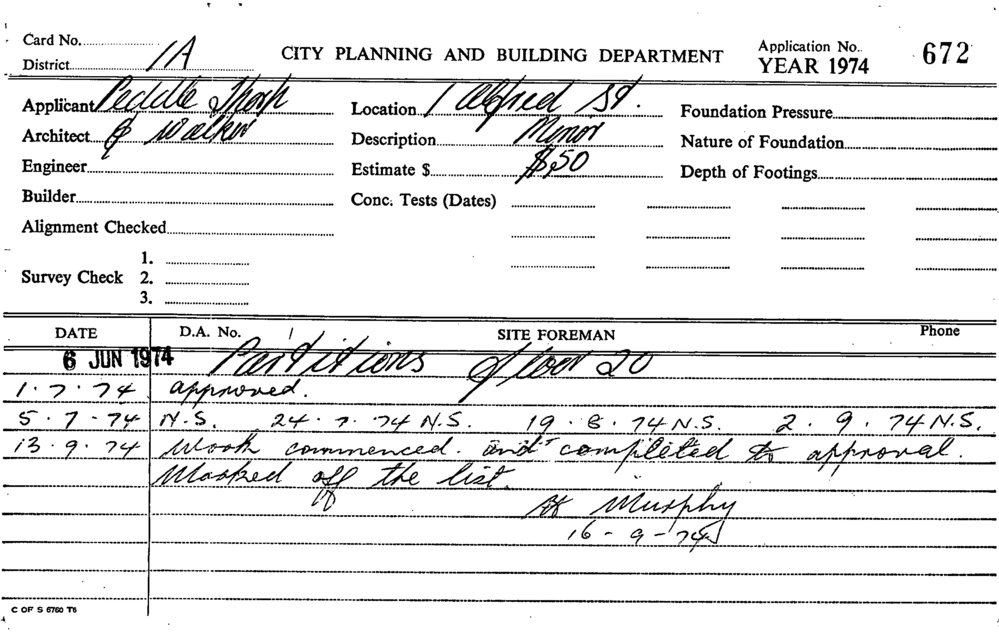 Card No.
CITY PLANNING AND BUILDING DEPARTMENT
Application No. 672
District 1A
YEAR 1974
Applicant Peddle Thorp
Location 1 Alfred St.
Foundation Pressure
Architect & Walker
Description Minor
Nature of Foundation
Engineer
Estimate $ $50
Depth of Footings
Builder
Conc. Tests (Dates)
Alignment Checked
1.
Survey Check 2.
3.
DATE D.A. No. / SITE FOREMAN Phone
6 JUN 1974 Partitions floor 20
1.7.74 approved.
5.7.74 N.S. 24.7.74 N.S. 19.8.74 N.S. 2.9.74 N.S.
13.9.74 Work commenced. and completed to approval.
Marked off the list.
Murphy
16-9-74
C OF S 6760 T6